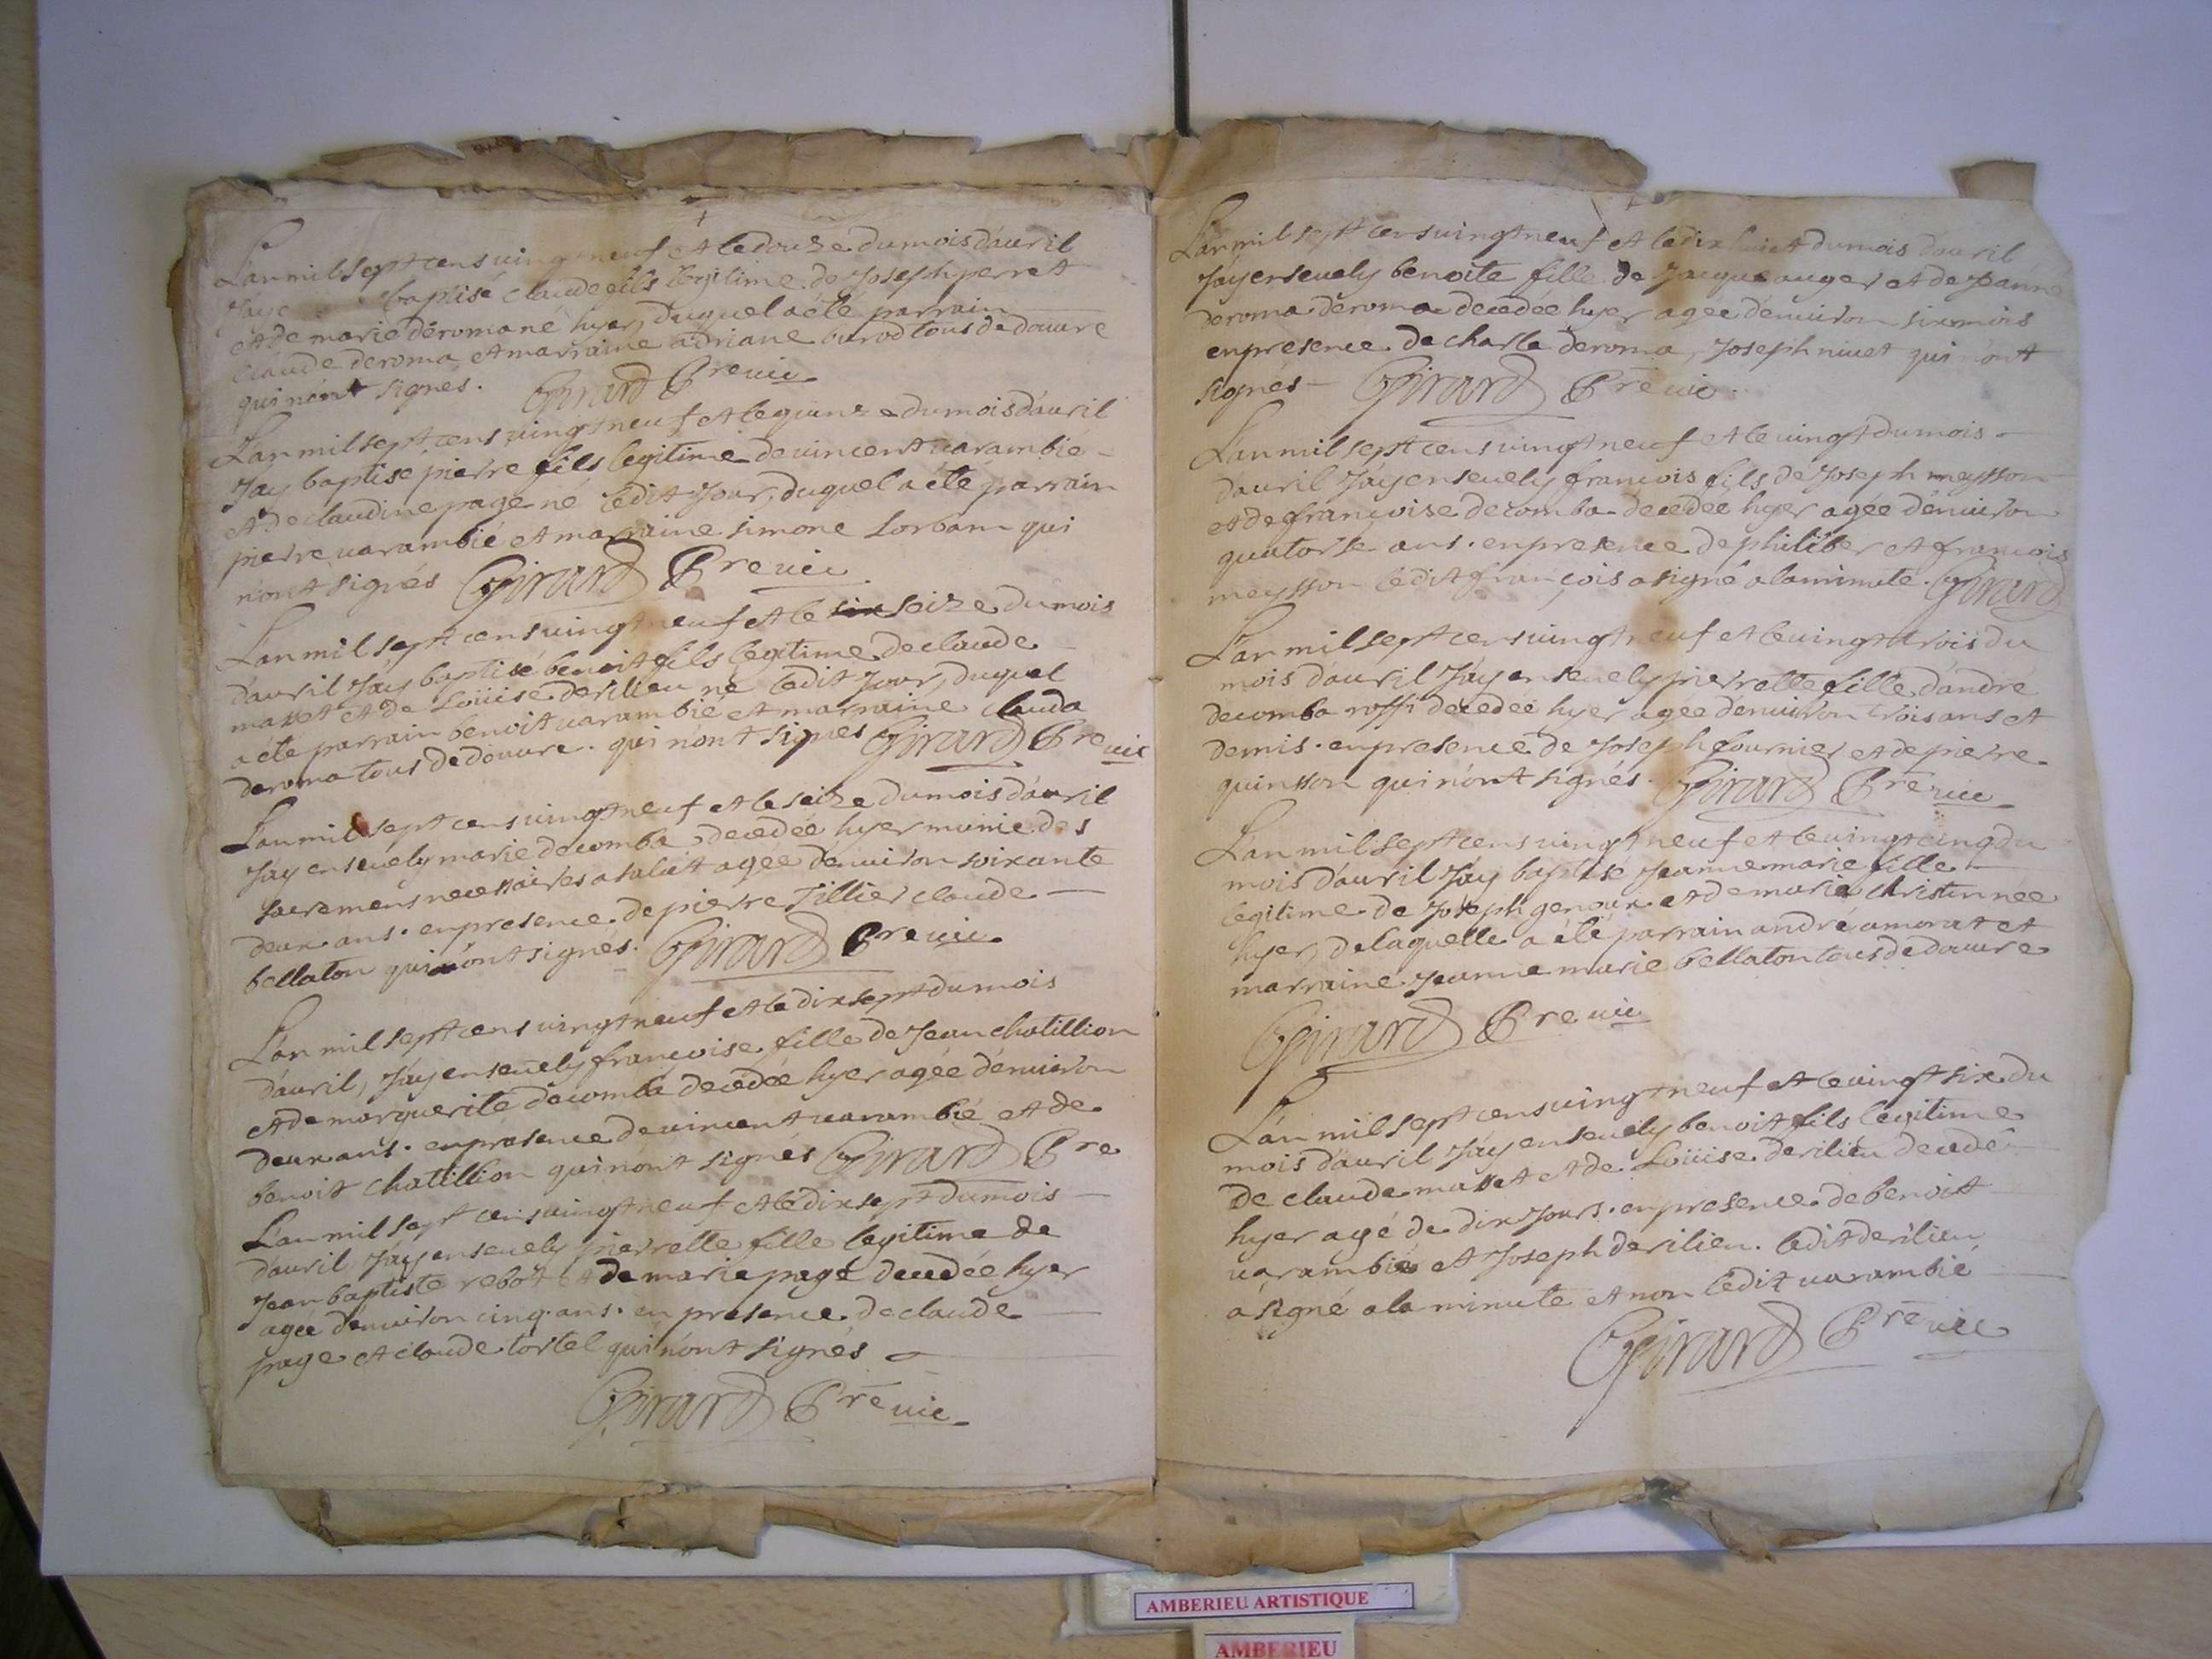 Lan mil sept cens vingt neuf et le douze du mois dauril
Jay baptisé claude fils legitime de Joseph perret
et de marie deroma né hyer, duquel a été parrain
claude deroma et marraine adriane burod tous de douure
qui n'ont signés. Girard Pre uic
Lan mil sept cens vingt neuf et le quinze du mois dauril
Jay baptisé pierre fils legitime de uincent uarambié
et de claudine page né ledit Jour, duquel a été parrain
pierre uarambié et marraine simone Lorban qui
n'ont signés Girard Pre uic
Lan mil sept cens uingt neuf et le six seize du mois
dauril Jay baptisé benoit fils legitime de claude
masset et de Loüise derilieu né ledit Jour, duquel
a été parrain benoit uarambié et marraine clauda
deroma tous de douure. qui n'ont signés Girard Pre uic
Lan mil sept cens uingt neuf et le seize du mois dauril
Jay enseuely marie decomba decedée hyer munie des
sacremens necessaires a salut agée dénuiron soixante
deux ans. en presence de pierre Tillier claude
bellaton qui n'ont signés. Girard Pre uic
Lan mil sept cens uingt neuf et le dix sept du mois
dauril, Jay enseuely francoise fille de Jean chatillion
et de marguerite decomba decedée hyer agée dénuiron
deux ans. en présence de uincent uarambié et de
benoit chatillion qui n'ont signés Girard Pre
Lan mil sept cens uingt neuf et le dix sept du mois
dauril Jay enseuely pierrette fille legitime de
Jean baptiste rebot et de marie page decedée hyer
agée dénuiron cinq ans. en presence de claude
page et claude tortel qui n'ont signés
Girard Pre uic
Lan mil sept cens uingt neuf et le dix huict du mois dauril
Jay enseuely benoite fille de Jacque auger et de Jeanne
deroma deroma decedée hyer agée dénuiron six mois
en presence de charle deroma, Joseph niuet qui n'ont
signés Girard Pre uic
Lan mil sept cens uingt neuf et le uingt du mois
dauril Jay enseuely francois fils de Joseph meysson
et de francoise decomba decedé hyer agée dénuiron
quatorse ans. en presence de philiber et francois
meysson ledit francois a signé a la minute. Girard
Lan mil sept cens uingt neuf et le uingt trois du
mois dauril Jay enseuely pierrette fille d'andré
decomba roffi decedée hyer agée dénuiron trois ans et
demis. en presence de Joseph fournier et de pierre
quinson qui n'ont signés. Girard Pre uic
Lan mil sept cens uingt neuf et le uingt cinq du
mois dauril Jay baptisé Jeanne marie fille
legitime de Joseph genoux et de marie christin née
hyer, de laquelle a été parrain andré amorat et
marraine Jeanne marie bellaton tous de douure
Girard Pre uic
Lan mil sept cens uingt neuf et le uingt six du
mois dauril Jay enseuely benoit fils legitime
de claude masset et de Loüise derilieu decedé
hyer agé de dix Jours. en presence de benoit
uarambié et Joseph derilieu. ledit derilieu
a signé a la minute et non ledit uarambié
Girard Pre uic
AMBERIEU ARTISTIQUE
AMBERIEU